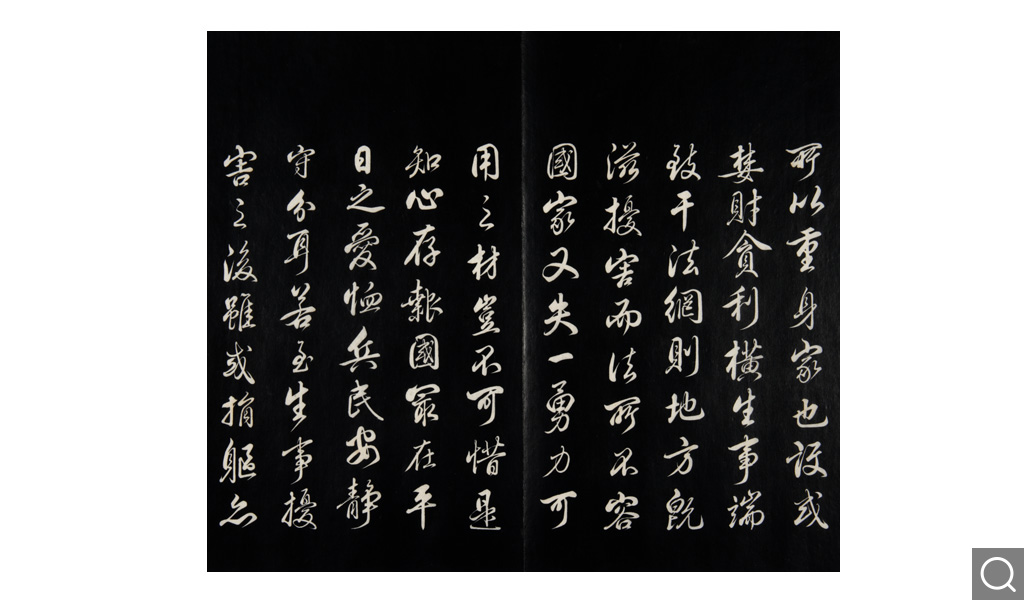 所以重身家也設或
婪財貪利橫生事端
致干法網則地方既
滋擾害而法所不容
國家又失一勇力可
用之材豈不可惜是
知心存報國最在平
日之愛恤兵民安靜
守分耳若至生事擾
害之後雖或捐軀亦